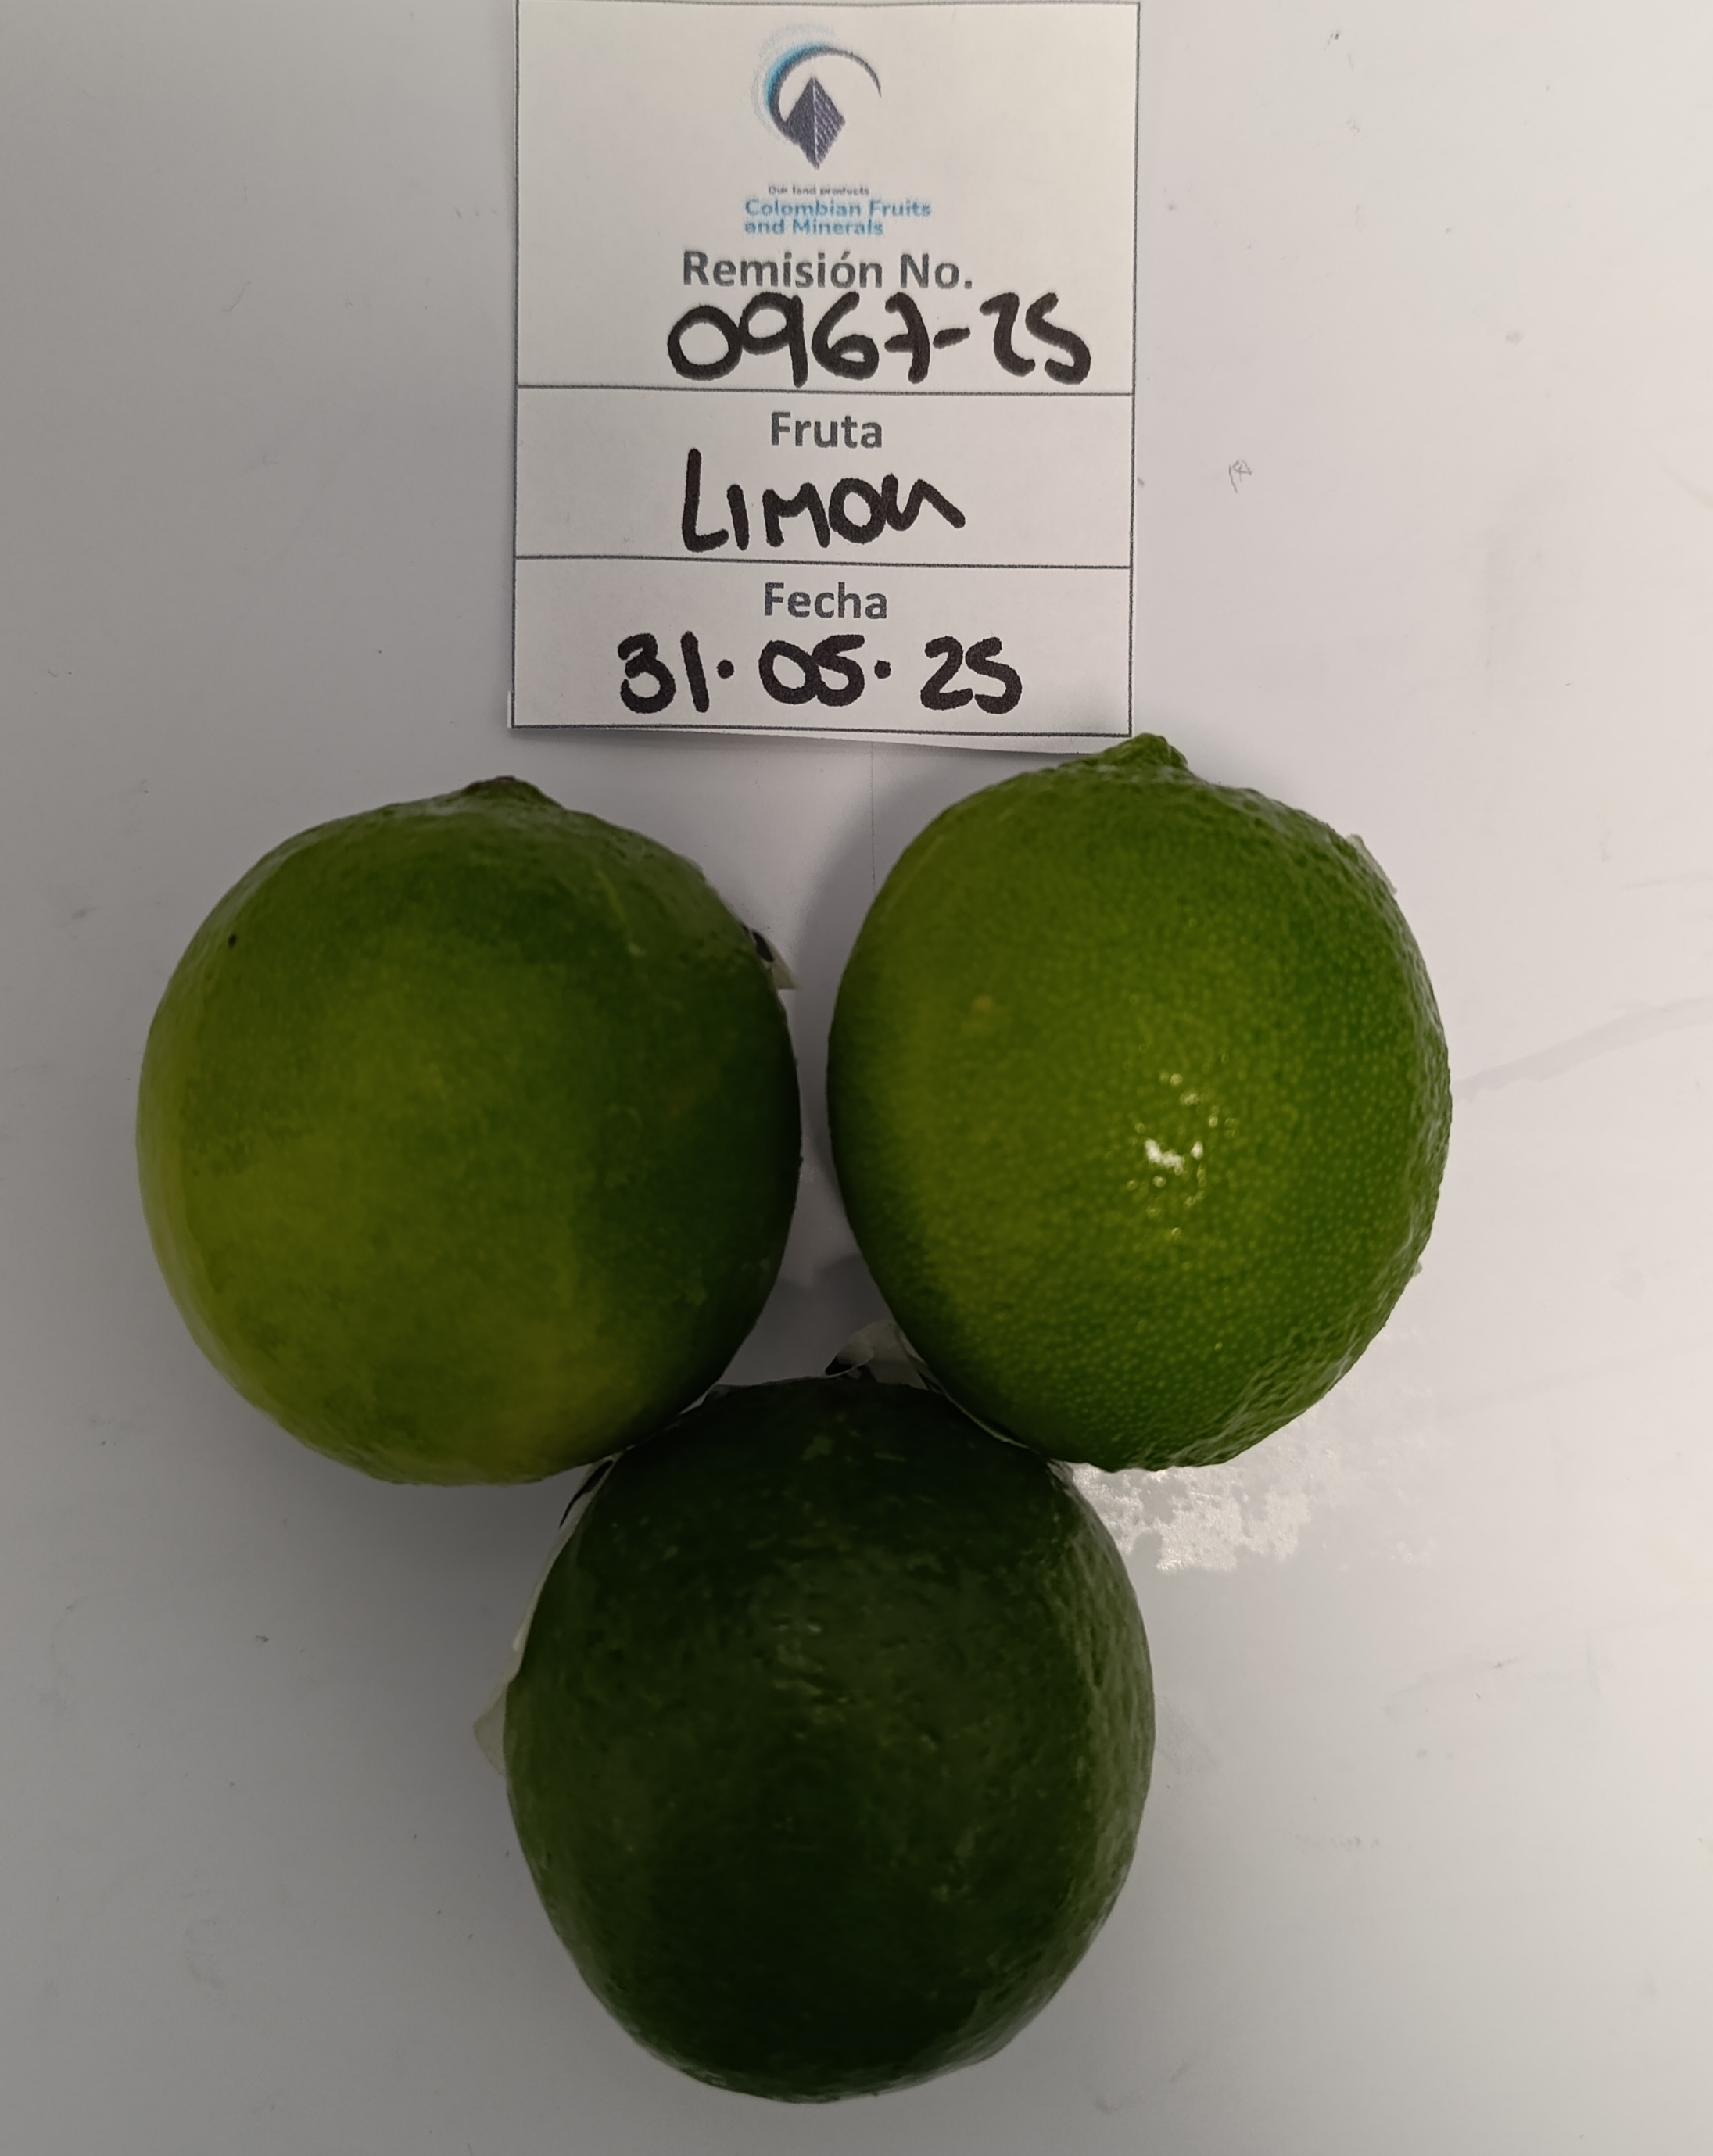 Our land products
Colombian Fruits
and Minerals
Remisión No.
0967-25
Fruta
LIMON
Fecha
31·05·25